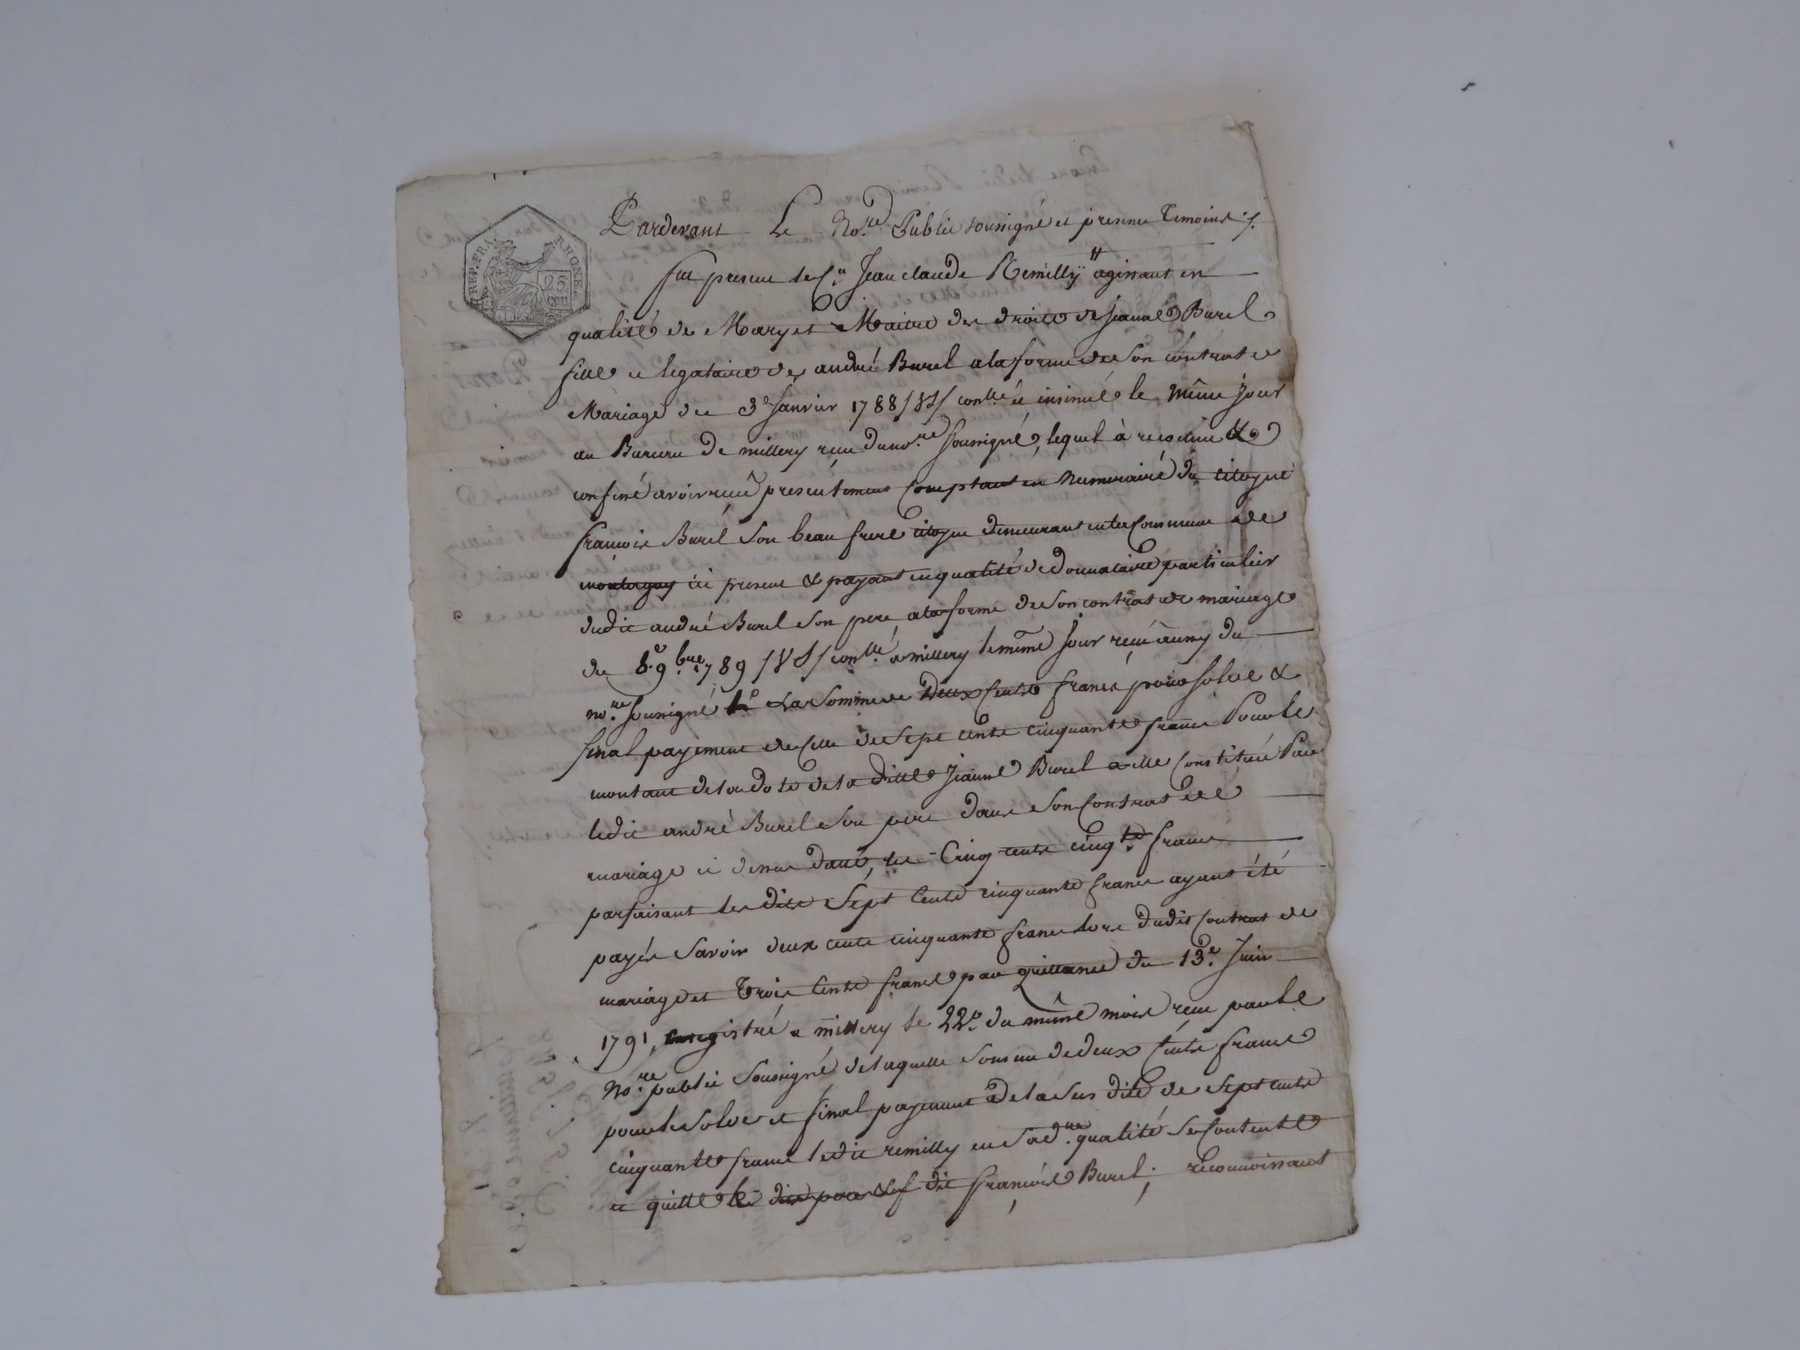 REP. FRA. RHONE
25
CEN
Pardevant Le No.re Public soussigné et presence Temoins ./.
fut present le C.n Jean claude Remilly agissant en
qualité de Mary et Maitre des droits de jeanne Burel
fille et legataire de andré Burel a la forme de son contrat de
Mariage du 3e janvier 1788 /VS/ con.llé et insinué le même jour
au Bureau de millery reçu du no.re soussigné, lequel à reconnu &
confessé avoir reçu presentement comptant en numeraire du citoyen
françois Burel son beau frere citoyen demeurant en la commune de
montagny ici present & payant en qualité de donnataire particulier
dudit andré Burel son pere a la forme de son contrat de mariage
du 8.e 9.bre 1789 /VS/ con.llé a millery le même jour reçu aussy du
no.re soussigné La somme de Deux Cents francs pour solde &
final payement de celle de Sept cents cinquante francs Pour le
montant de la dote de la ditte Jeanne Burel a elle Constituée Par
ledit andré Burel son pere dans son Contrat de
mariage ci dessus daté, les Cinq cents cinq.te francs
parfaisant les dits Sept Cents cinquante francs ayant été
payés Savoir deux cents cinquante francs lors dudit contrat de
mariage et Trois Cents francs par quittance du 13.e Juin
1791, enregistré a millery le 22.e du même mois reçu par le
No.re public Soussigné de laquelle somme de deux Cents francs
pour le solde et final payement de la sus dite de Sept cents
cinquante francs ledit remilly en sa d.te qualité se Contente
et quitte le dit françois Burel; reconnoissant